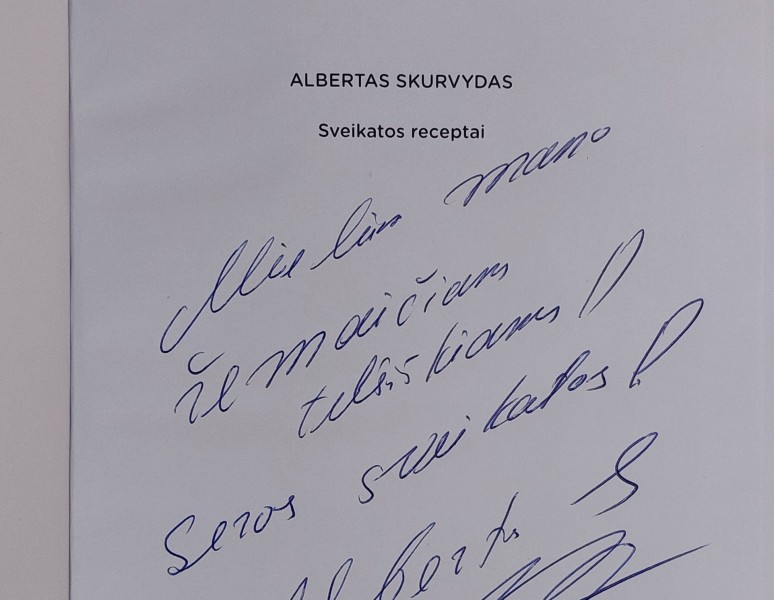 ALBERTAS SKURVYDAS
Sveikatos receptai
Mieliem mano
žemaičiams
telšiškiams!
Geros sveikatos!
Alberts S